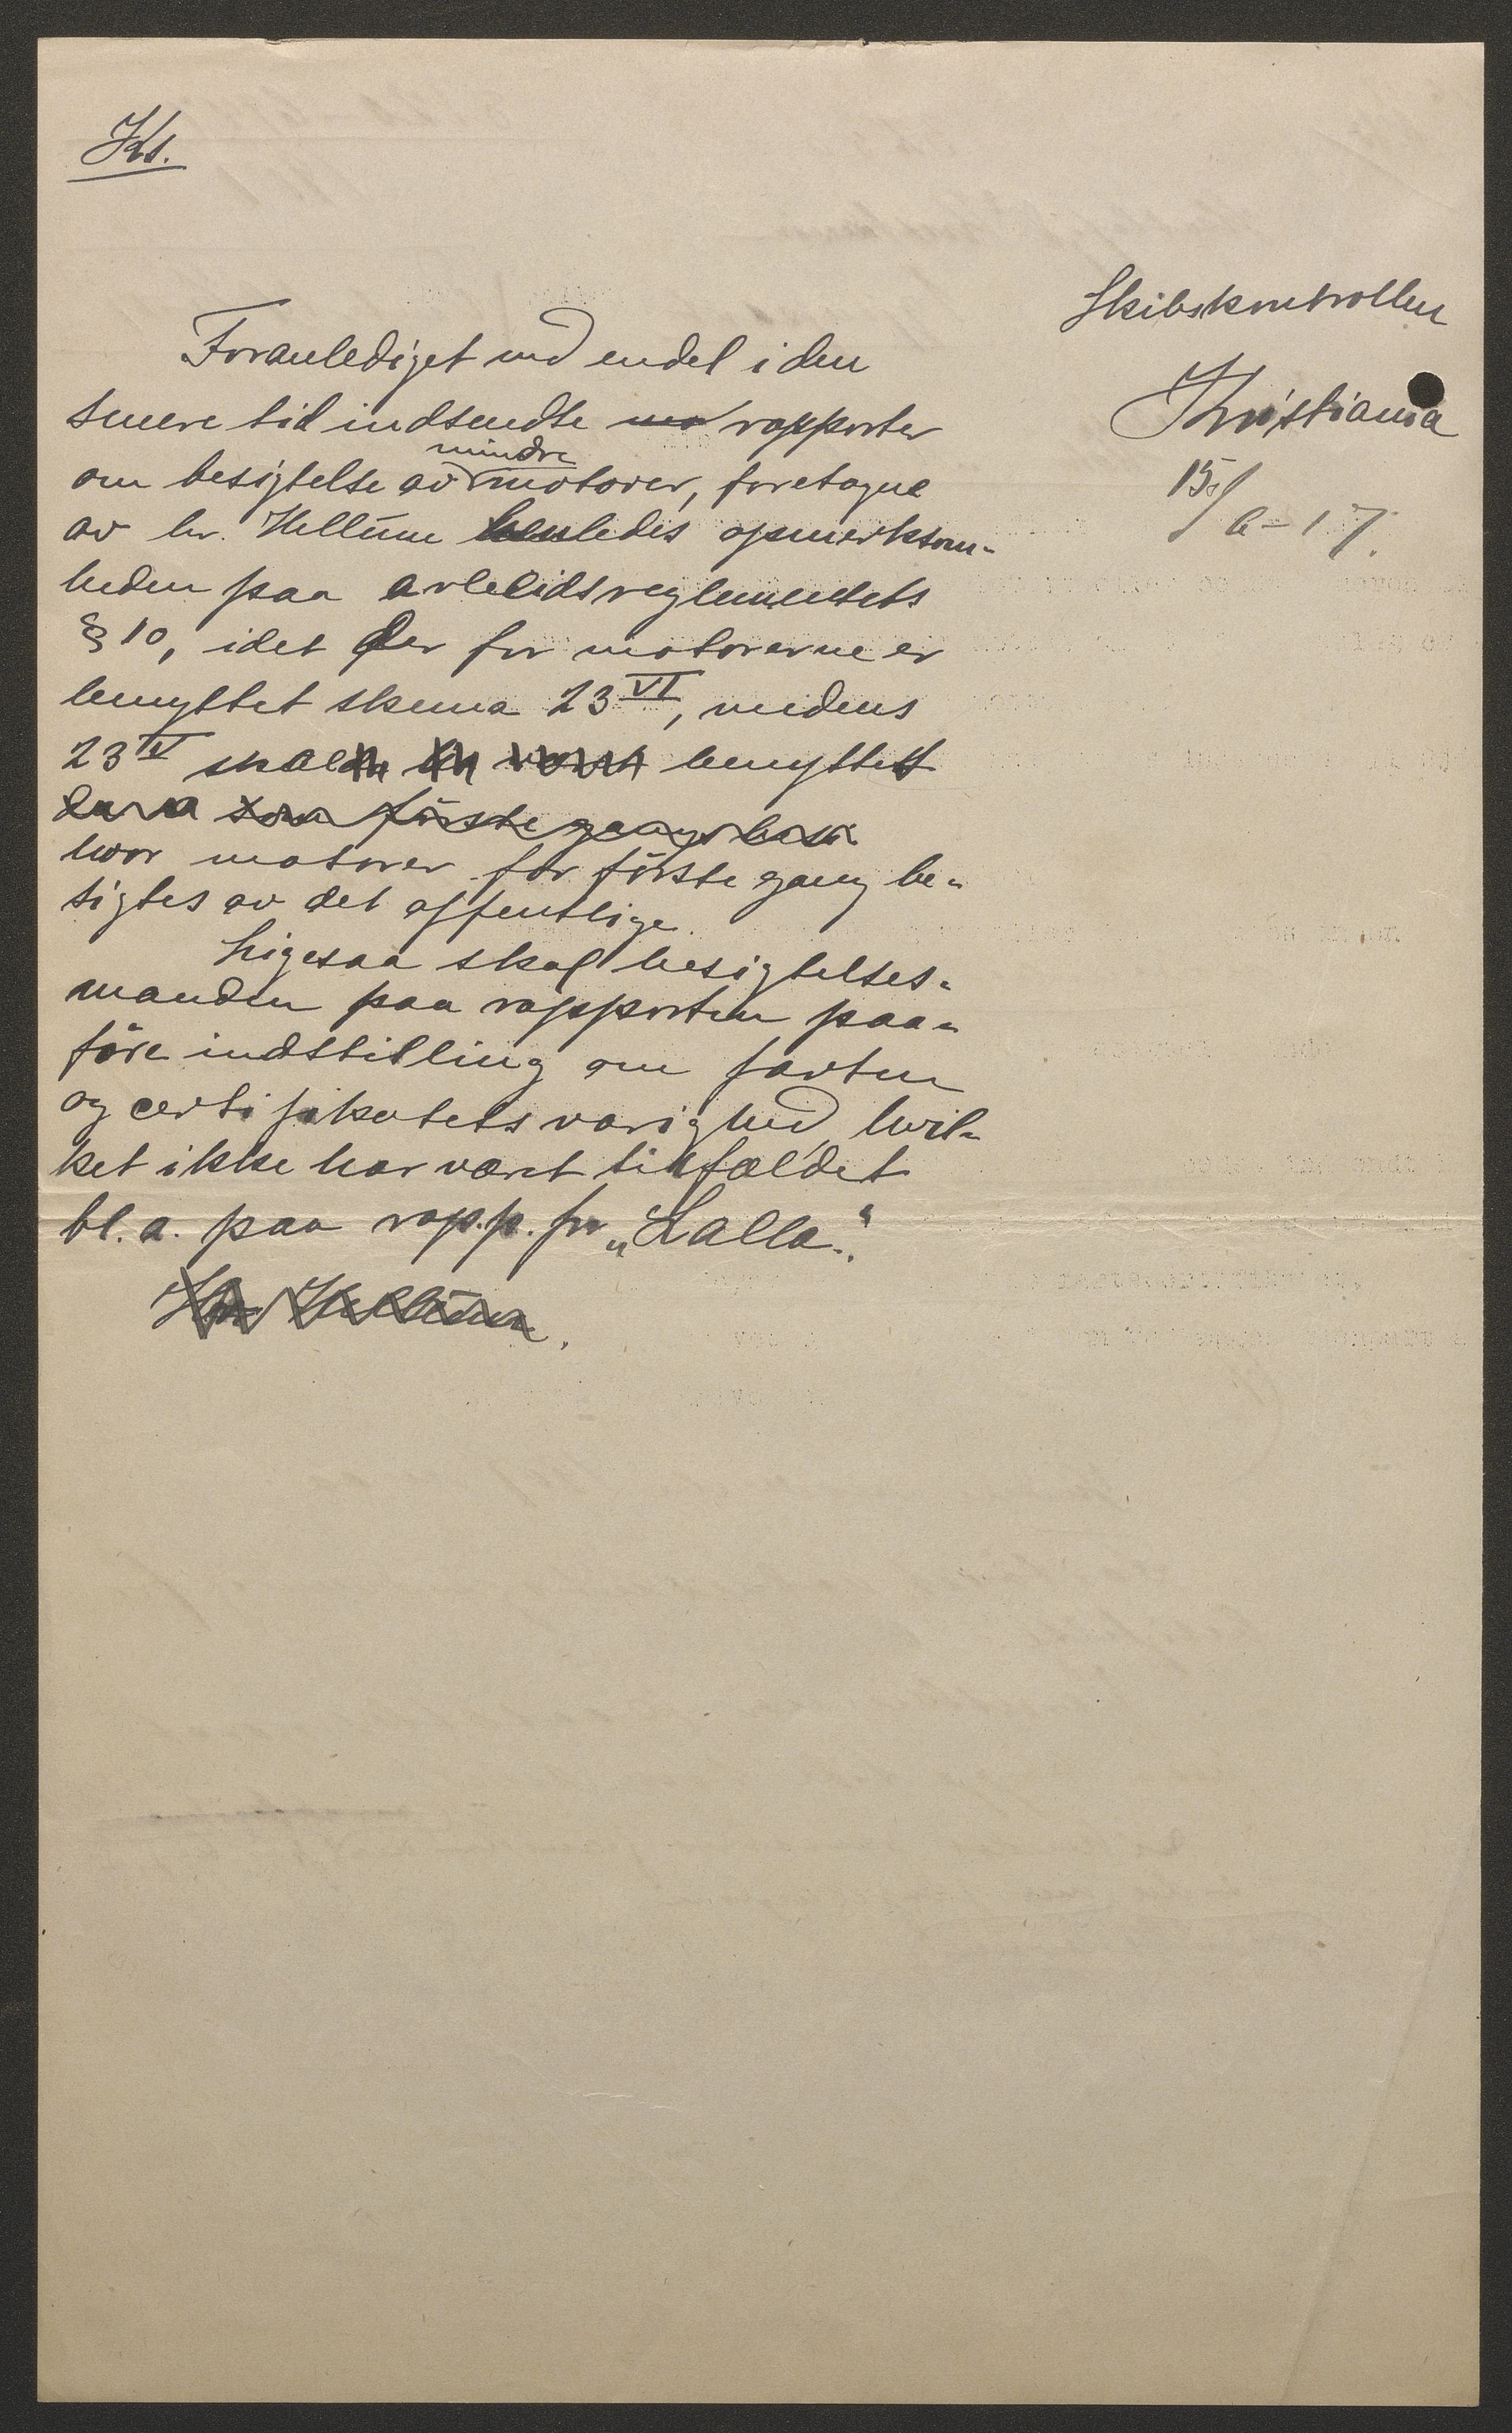 Ks.
Skibskontrollen
Kristiania
15/6-17.
Foranlediget ved endel i den
senere tid indsendte mo rapporter
om besigtelse av mindre motorer, foretagne
av hr. Hellum henledes opmerksom-
heden paa arbeidsreglementets
§ 10, idet der for motorerne er
benyttet skema 23 VI, medens
23 V skal benyttes
første gangs besi
hvor motorer for første gang be-
sigtes av det offentlige.
Ligesaa skal besigtelses-
manden paa rapporten paa-
føre indstilling om farten
og certifikatets varighed, hvil-
ket ikke har været tilfældet
bl. a. paa rapp. for „Lalla“.
Hr. Hellum.